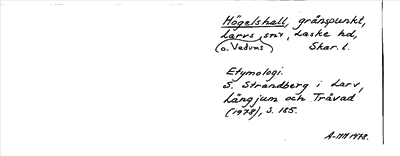 Högelshall, gränspunkt,
Larvs snr, Laske hd,
(o. Vedums) Skar. l.
Etymologi.
S. Strandberg i Larv,
Längjum och Tråvad
(1978), s. 185.
A-MM 1978.